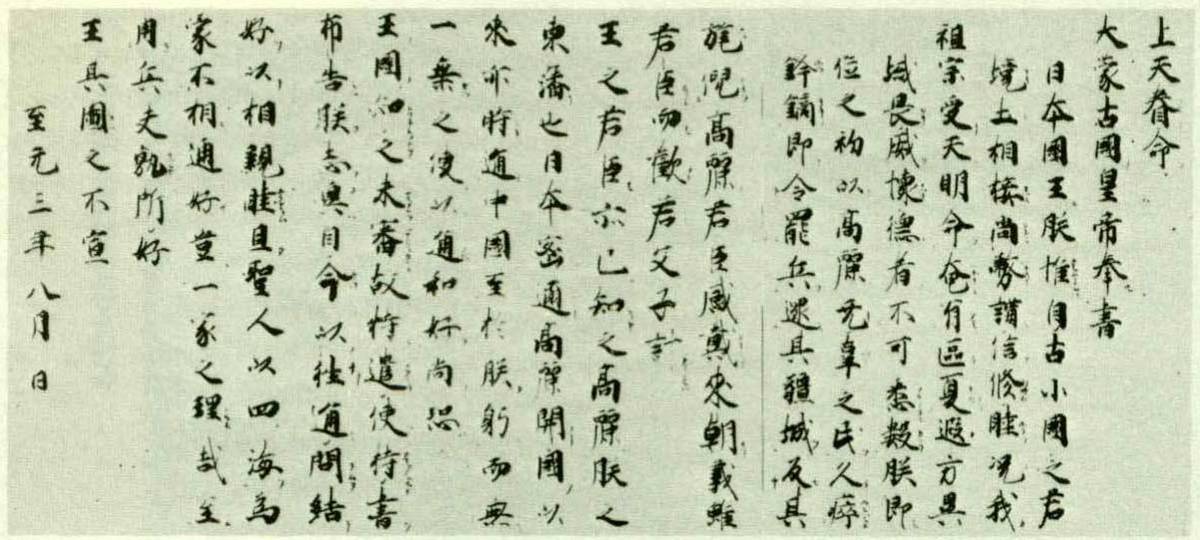 上天眷命
大蒙古國皇帝奉書
日本國王朕惟自古小國之君
境土相接尚務講信修睦况我
祖宗受天明命奄有區夏遐方異
域畏威懷德者不可悉數朕即
位之初以高麗无辜之民久瘁
鋒鏑即令罷兵還其疆域反其
旄倪高麗君臣感戴來朝義雖
君臣而歡若父子計
王之君臣亦已知之高麗朕之
東藩也日本密邇高麗開國以
來亦時通中國至於朕躬而無
一乘之使以通和好尚恐
王國知之未審故特遣使持書
布告朕志冀自今以往通問結
好以相親睦且聖人以四海為
家不相通好豈一家之理哉至
用兵夫孰所好
王其圖之不宣
至元三年八月 日